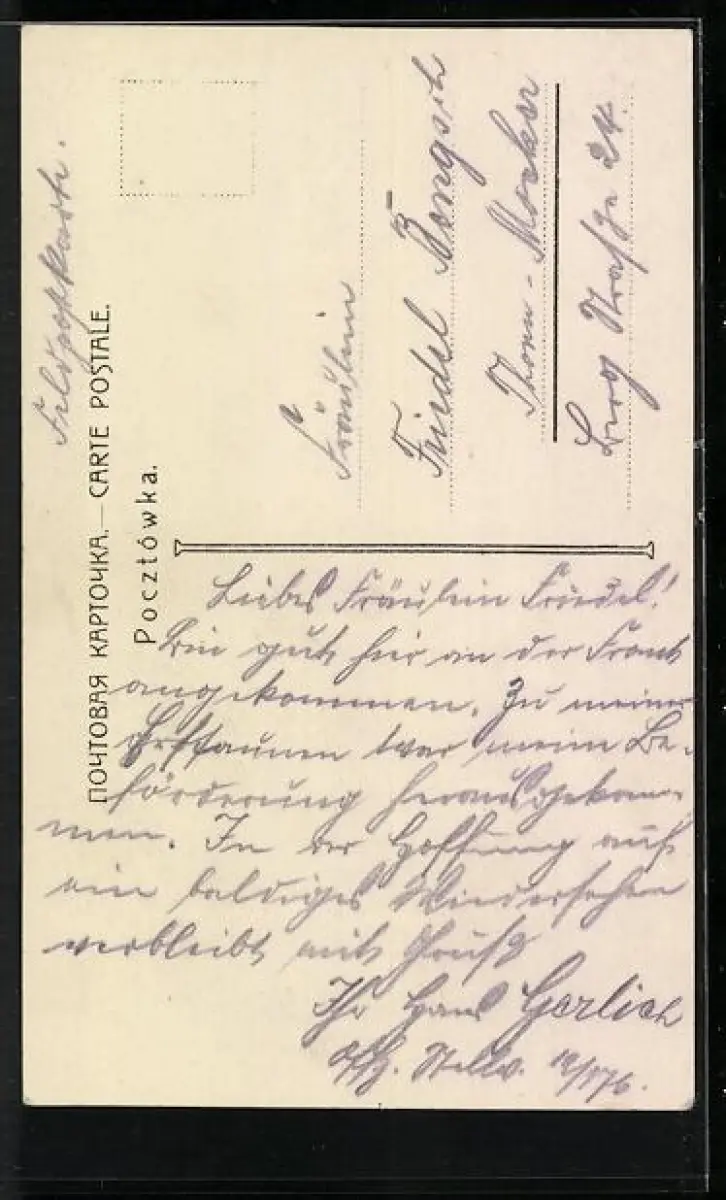 Feldpostkarte.
ПОЧТОВАЯ КАРТОЧКА. — CARTE POSTALE.
Pocztówka.
Fräulein
Friedel
Thorn - Mocker
Berg Straße 24.
Liebes Fräulein Friedel!
Bin gut hier an der Front
angekommen. Zu meinem
Erstaunen war meine Be-
förderung herausgekom-
men. In der Hoffnung auf
ein baldiges Wiedersehen
verbleibt mit Gruß
Ihr Hans Gerlich
Offz. Stellv.